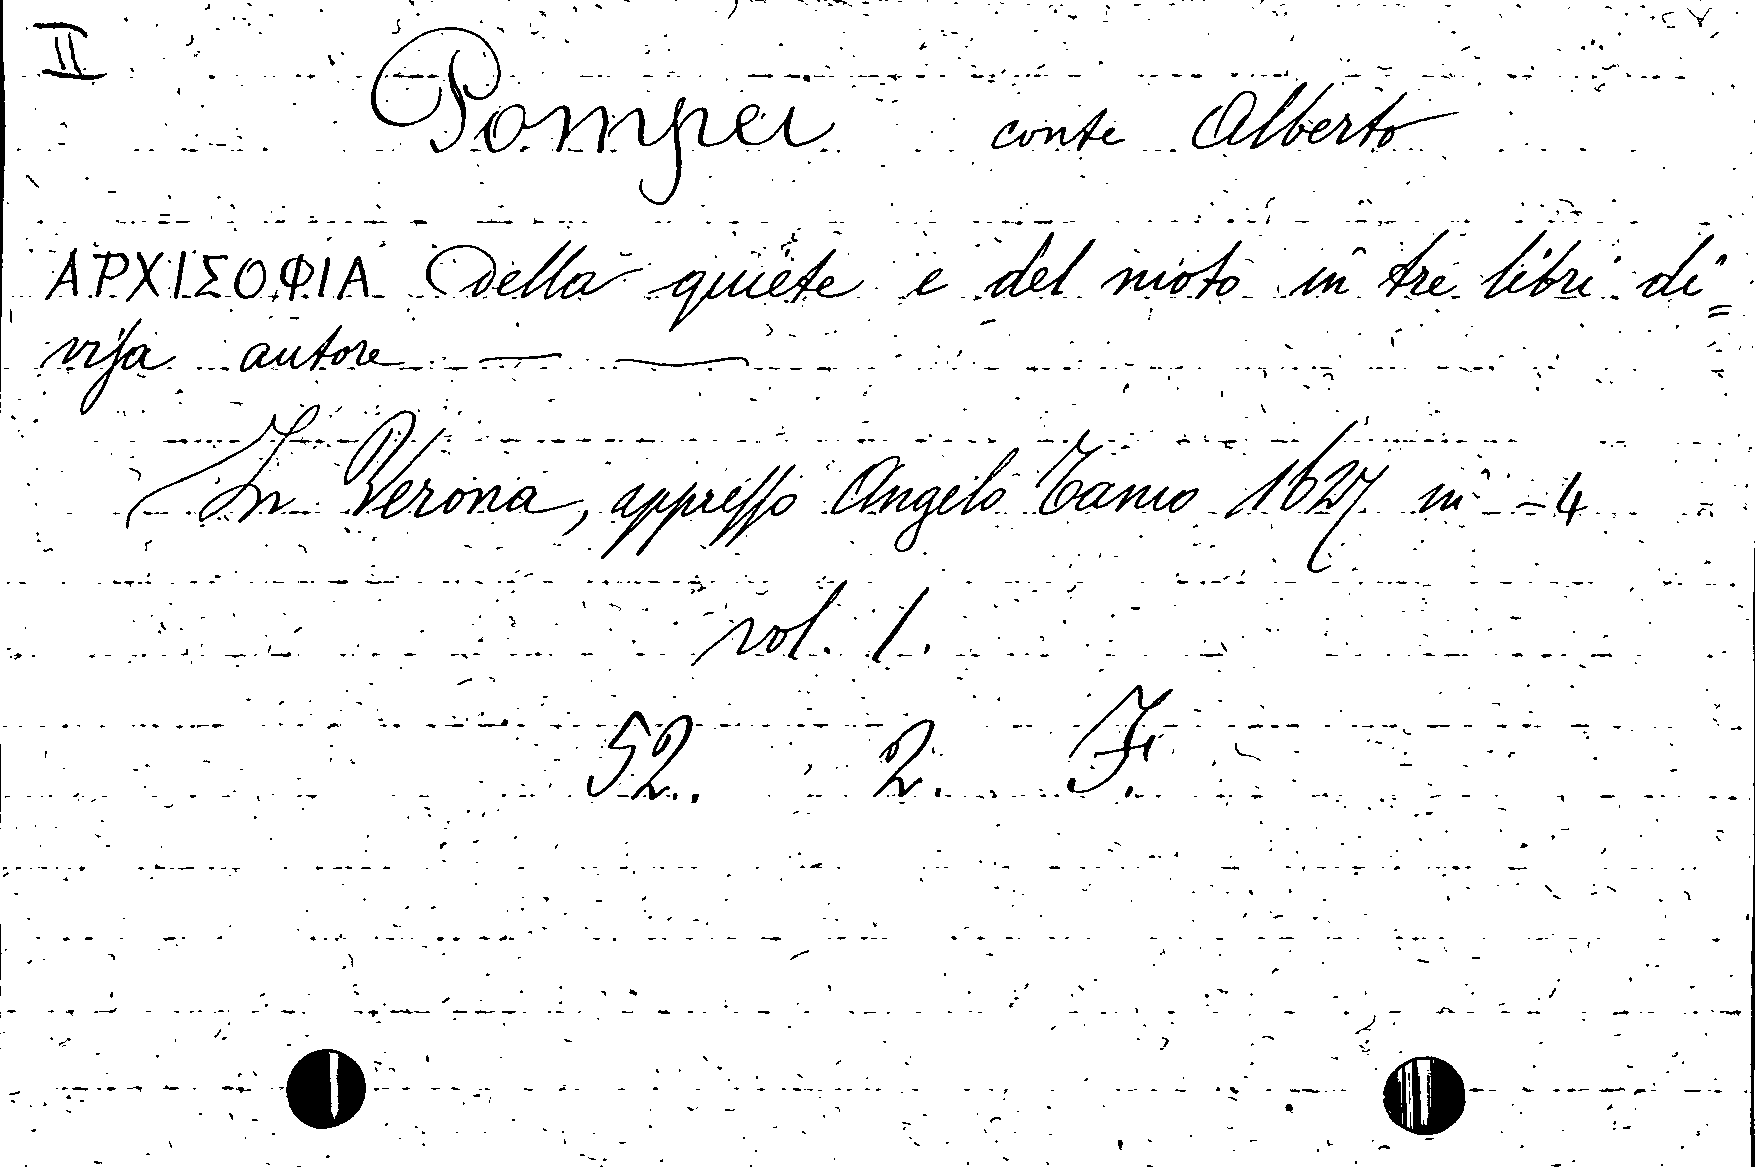 II
Pompei conte Alberto
ΑΡΧΙΣΟΦΙΑ Della quiete e del moto in tre libri di=
viſa autore — —
In Verona, appreſſo Angelo Tamo 1627 in -4
vol. 1.
52. 2. F.